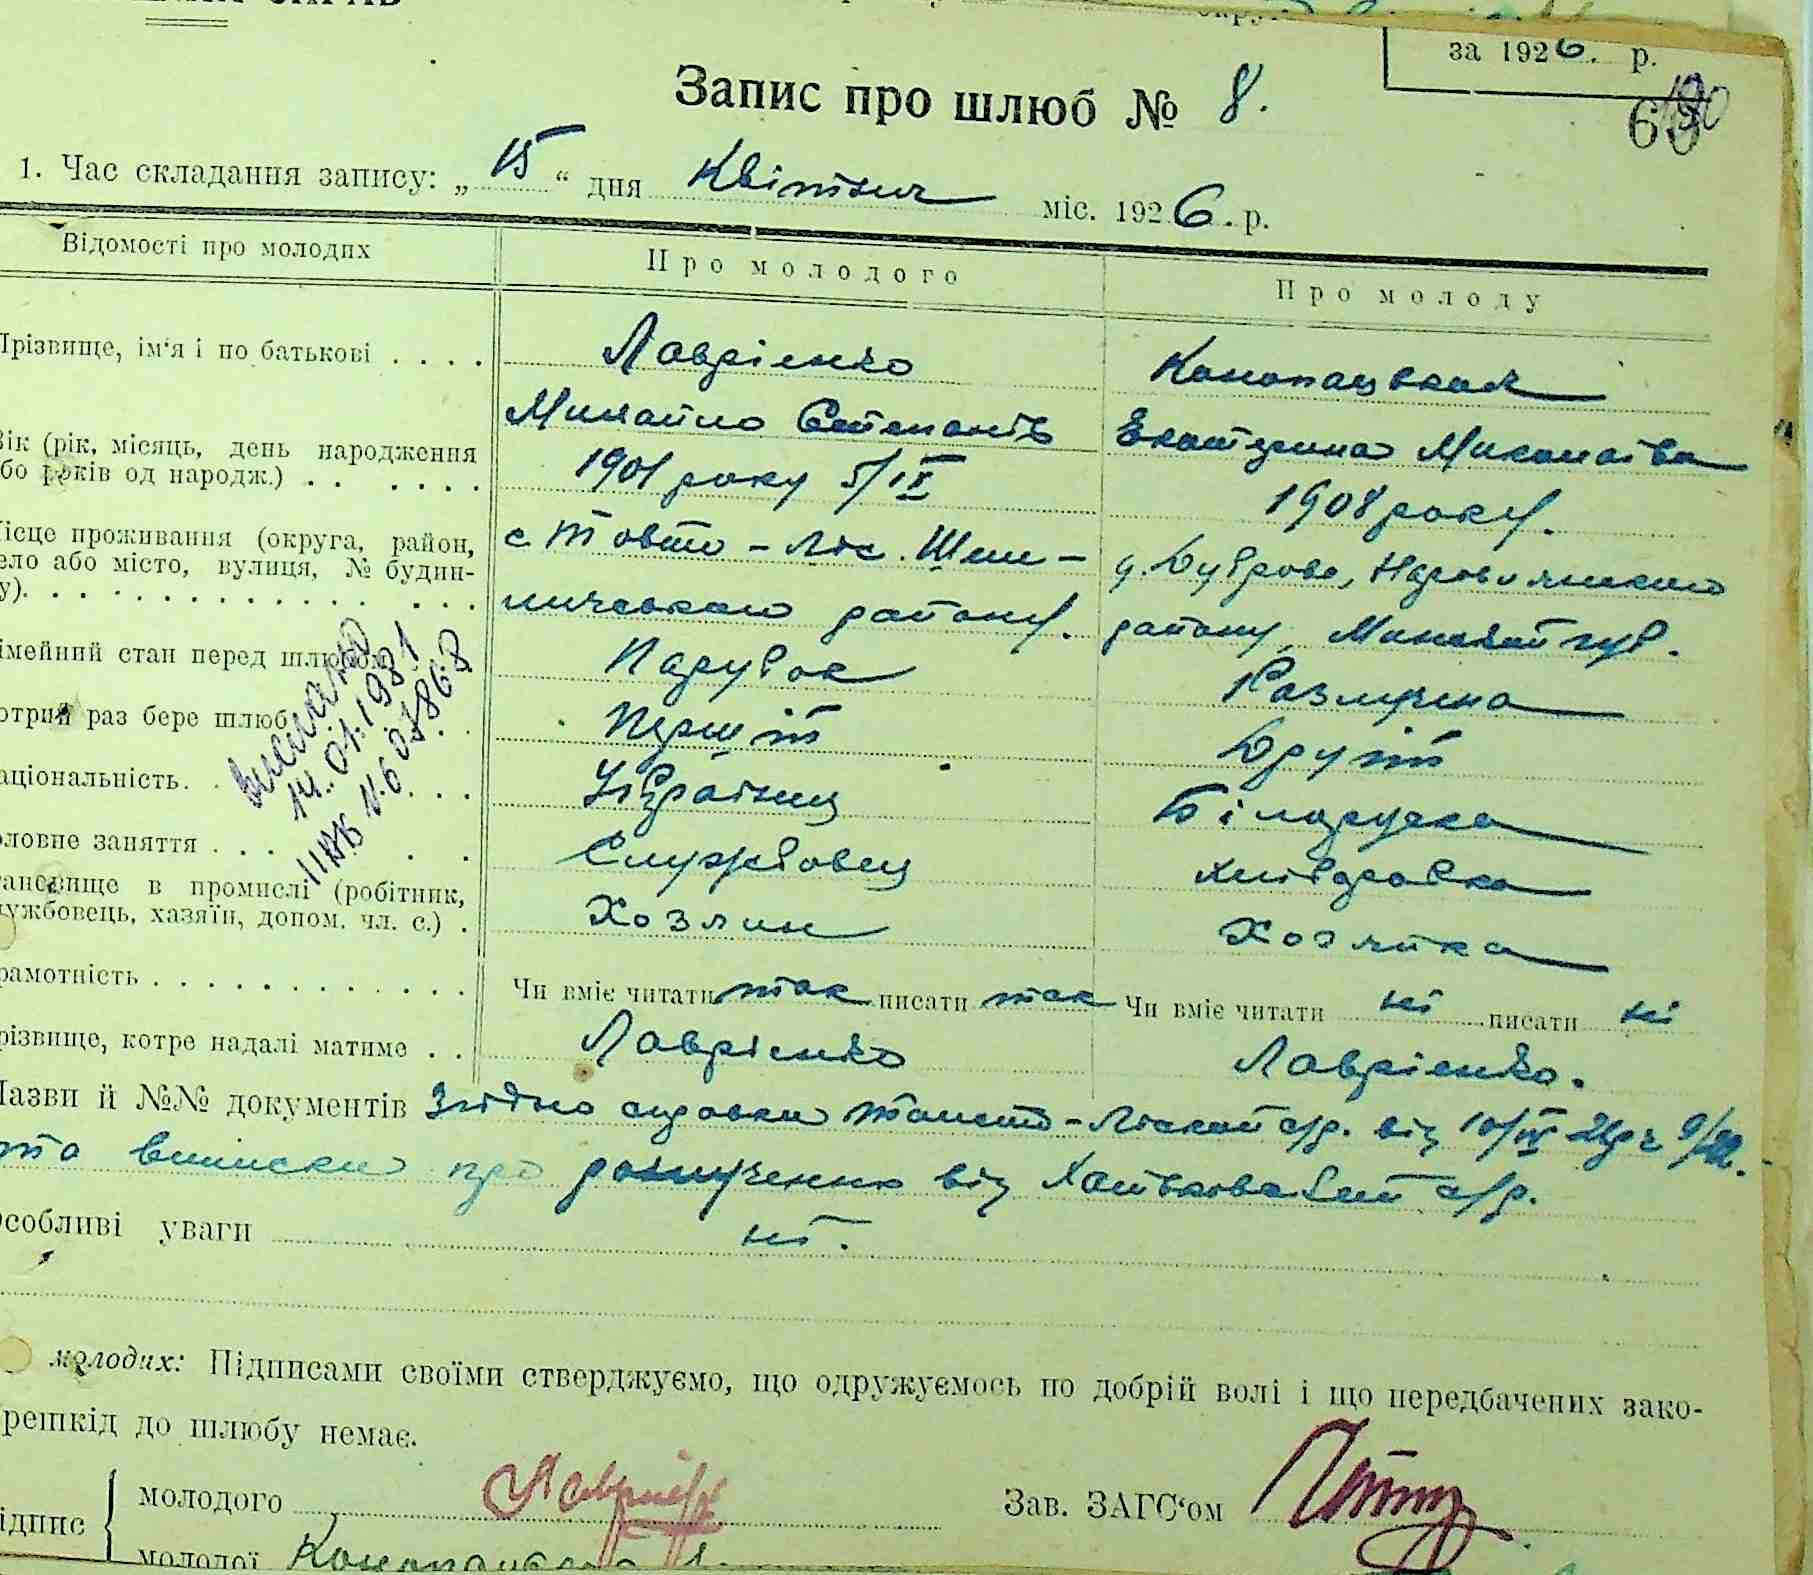 за 1926. р.
Запис про шлюб № 8.
1. Час складання запису: „15“ дня Квітня міс. 1926. р.
Відомості про молодих
Про молодого
Про молоду
Прізвище, ім‘я і по батькові . . . .
Лавріенко
Михайло Степанів
Конопацькая
Екатерина Миколаівна
Вік (рік, місяць, день народження
або років од народж.) . . . . . .
1901 року 5/IX
1908 року.
Місце проживання (округа, район,
село або місто, вулиця, № будин-
ку). . . . . . . . . . . . . .
с. Товсто-Ліс. Шепе-
личського району.
д. Дуброва, Наровлянського
району, Минской губ.
імейний стан перед шлюбом
Парубок
Разлучена
отрий раз бере шлюб
Перший
Другий
аціональність. . . . .
Украінец
Білоруска
оловне заняття . . . . .
Службовец
Хліборобка
тановище в промислі (робітник,
службовець, хазяїн, допом. чл. с.) .
Хозяин
Хозяйка
рамотність . . . . . . . . . . .
Чи вміє читати так писати так
Чи вміє читати ні писати ні
різвище, котре надалі матиме . .
Лавріенко
Лавріенко.
Назви й №№ документів Згідно справки Товсто-Ліской с/р. від 10/IV 26 р.
та виписки про розлученню від с/р.
Особливі уваги ні.
виписано
14.01.1981
молодих: Підписами своїми стверджуємо, що одружуємось по добрій волі і що передбачених зако-
решкід до шлюбу немає.
ідпис
молодого
Зав. ЗАГС‘ом
молодої